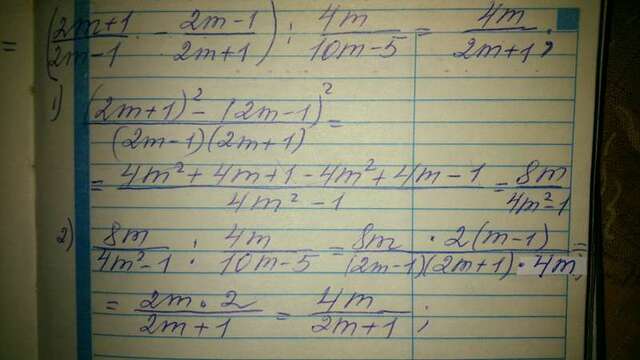 = ((2m+1)/(2m-1) - (2m-1)/(2m+1)) : 4m/(10m-5) = 4m/(2m+1);
1) ((2m+1)² - (2m-1)²)/((2m-1)(2m+1)) =
= (4m² + 4m + 1 - 4m² + 4m - 1)/(4m² - 1) = 8m/(4m²-1)
2) 8m/(4m²-1) : 4m/(10m-5) = (8m · 2(m-1))/((2m-1)(2m+1) · 4m) =
= (2m · 2)/(2m+1) = 4m/(2m+1);